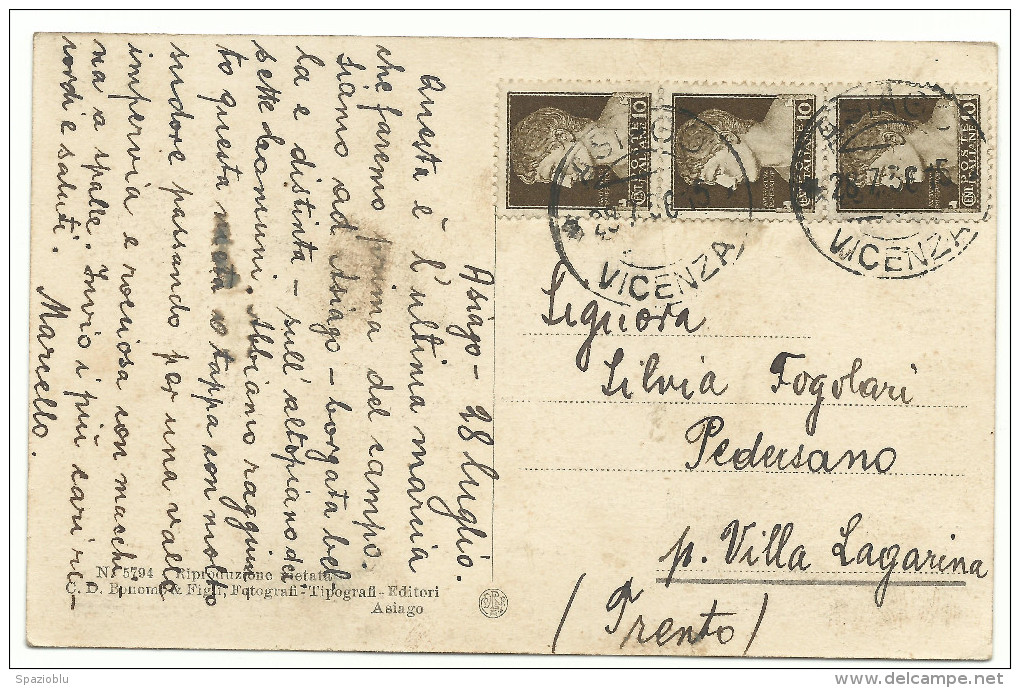 Asiago - 28 luglio.
Questa è l'ultima marcia
che faremo prima del campo.
Siamo ad Asiago - borgata bel
la e distinta - sull'altopiano dei
sette Comuni. Abbiamo raggiun
to questa meta o tappa con molto
sudore passando per una valle
impervia e rocciosa con macchi
na a spalle. Invio i più cari ri-
cordi e saluti.
Marcello.
POSTE ITALIANE 10
POSTE ITALIANE 10
POSTE ITALIANE 10
ASIAGO
VICENZA
ASIAGO
VICENZA
Signora
Silvia Fogolari
Pedersano
p. Villa Lagarina
(Trento)
N. 5794 Riproduzione vietata
C. D. Bonomo & Figli, Fotografi - Tipografi - Editori
Asiago
Spazioblu
delcampe.net